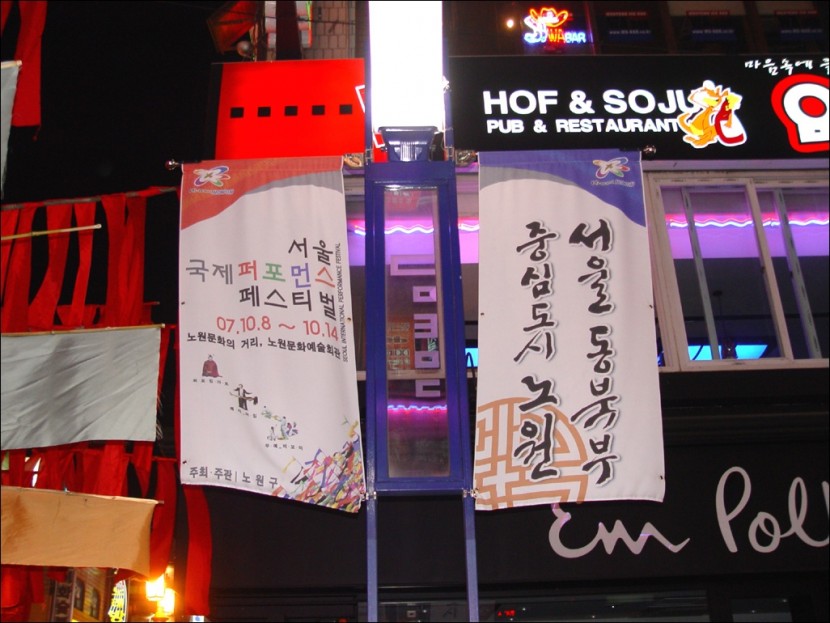 BAR
HOF & SOJU
PUB & RESTAURANT
마음속에
서울
국제퍼포먼스
페스티벌
SEOUL INTERNATIONAL PERFORMANCE FESTIVAL
07.10.8 ~ 10.14
노원문화의 거리, 노원문화예술회관
주최·주관 | 노원구
서울 동북부
중심도시 노원
Em Pol